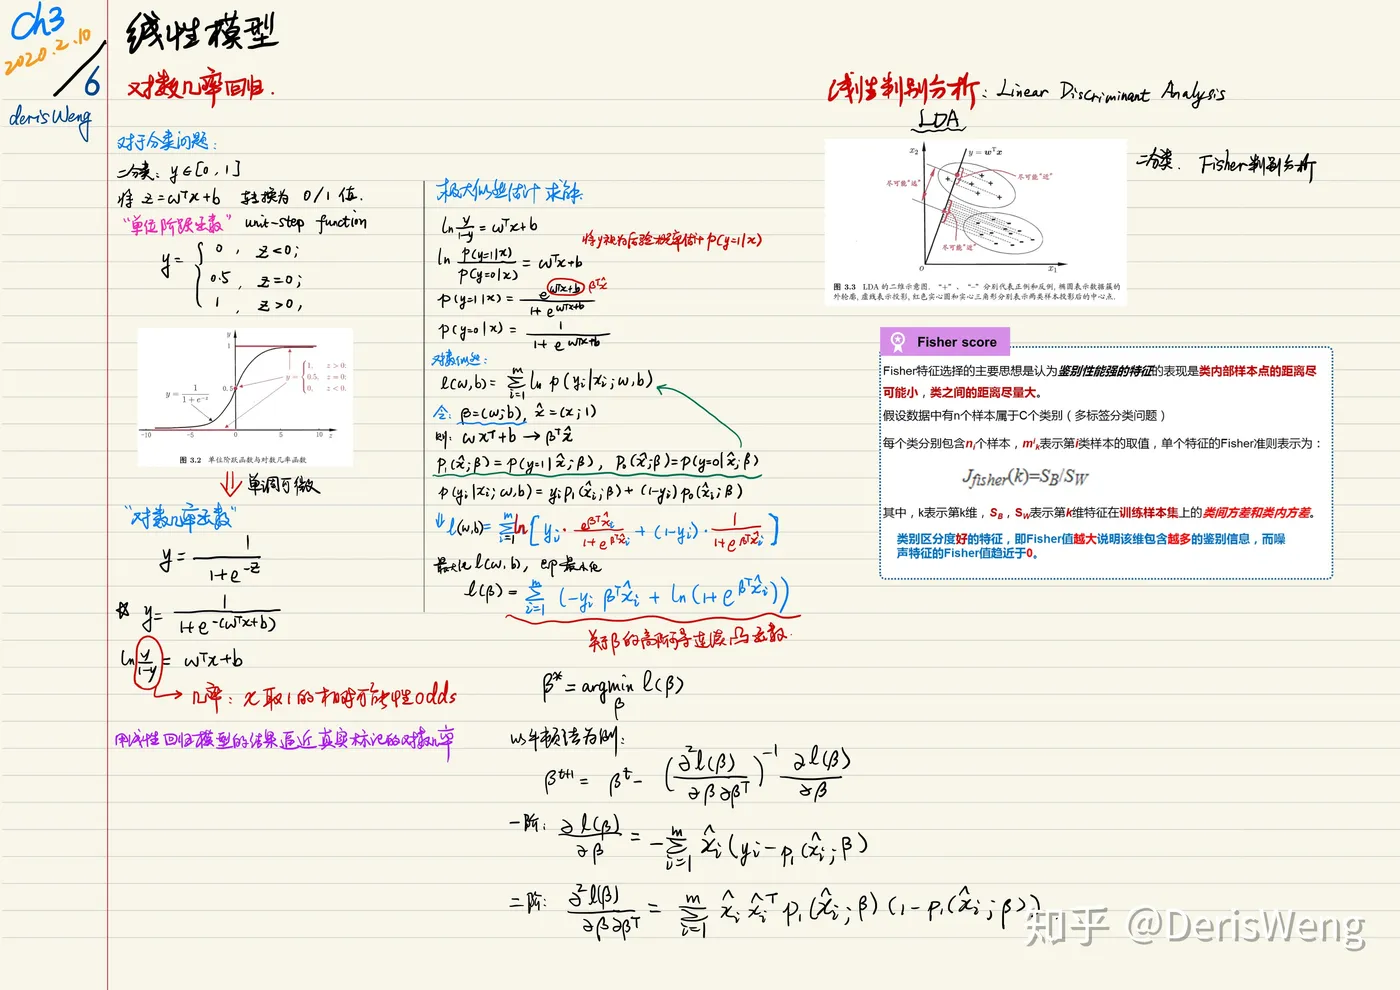 Ch3
2020.2.10
/6
derisWeng
线性模型
对数几率回归.
对于分类问题:
二分类: y∈[0,1]
将 z=ωᵀx+b 转换为 0/1 值.
"单位阶跃函数" unit-step function
y= { 0 , z<0;
0.5 , z=0;
1 , z>0,
y
1
0.5
y = 1/(1+e^{-z})
y = { 1, z > 0;
0.5, z = 0;
0, z < 0.
-10 -5 0 5 10 z
图 3.2 单位阶跃函数与对数几率函数
⇓ 单调可微
"对数几率函数"
y = 1/(1+e^{-z})
☆ y = 1/(1+e^{-(ωᵀx+b)})
ln y/(1-y) = ωᵀx+b
→ 几率: x取1的相对可能性odds
用线性回归模型的结果逼近真实标记的对数几率
极大似然估计 求解:
ln y/(1-y) = ωᵀx+b
将y视为后验概率估计 p(y=1|x)
ln p(y=1|x)/p(y=0|x) = ωᵀx+b
p(y=1|x) = e^{ωᵀx+b}/(1+e^{ωᵀx+b}) βᵀx̂
p(y=0|x) = 1/(1+e^{ωᵀx+b})
对数似然:
ℓ(ω,b) = Σ_{i=1}^{m} ln p(yi|xi; ω,b)
令: β=(ω;b), x̂=(x;1)
则: ωxᵀ+b → βᵀx̂
p₁(x̂;β) = p(y=1|x̂;β), p₀(x̂;β) = p(y=0|x̂;β)
p(yi|xi; ω,b) = yi p₁(x̂i;β) + (1-yi) p₀(x̂i;β)
⇓ ℓ(ω,b) = Σ_{i=1}^{m} ln[ yi · e^{βᵀx̂i}/(1+e^{βᵀx̂i}) + (1-yi) · 1/(1+e^{βᵀx̂i}) ]
最大化 ℓ(ω,b), 即最小化
ℓ(β) = Σ_{i=1}^{m} (-yi βᵀx̂i + ln(1+e^{βᵀx̂i}))
关于β的高阶可导连续凸函数.
β* = argmin_β ℓ(β)
以牛顿法为例:
β^{t+1} = β^t - (∂²ℓ(β)/∂β∂βᵀ)^{-1} ∂ℓ(β)/∂β
一阶: ∂ℓ(β)/∂β = -Σ_{i=1}^{m} x̂i (yi - p₁(x̂i;β))
二阶: ∂²ℓ(β)/∂β∂βᵀ = Σ_{i=1}^{m} x̂i x̂iᵀ p₁(x̂i;β)(1-p₁(x̂i;β)).
线性判别分析: Linear Discriminant Analysis
LDA
二分类. Fisher判别分析
x₂
y = wᵀx
尽可能"远"
尽可能"近"
尽可能"近"
0
x₁
图 3.3 LDA 的二维示意图. "+"、"-"分别代表正例和反例, 椭圆表示数据簇的
外轮廓, 虚线表示投影, 红色实心圆和实心三角形分别表示两类样本投影后的中心点.
Fisher score
Fisher特征选择的主要思想是认为鉴别性能强的特征的表现是类内部样本点的距离尽
可能小，类之间的距离尽量大。
假设数据中有n个样本属于C个类别（多标签分类问题）
每个类分别包含nᵢ个样本，mⁱₖ表示第i类样本的取值，单个特征的Fisher准则表示为：
J_fisher(k)=S_B/S_W
其中，k表示第k维，S_B，S_W表示第k维特征在训练样本集上的类间方差和类内方差。
类别区分度好的特征，即Fisher值越大说明该维包含越多的鉴别信息，而噪
声特征的Fisher值趋近于0。
知乎 @DerisWeng